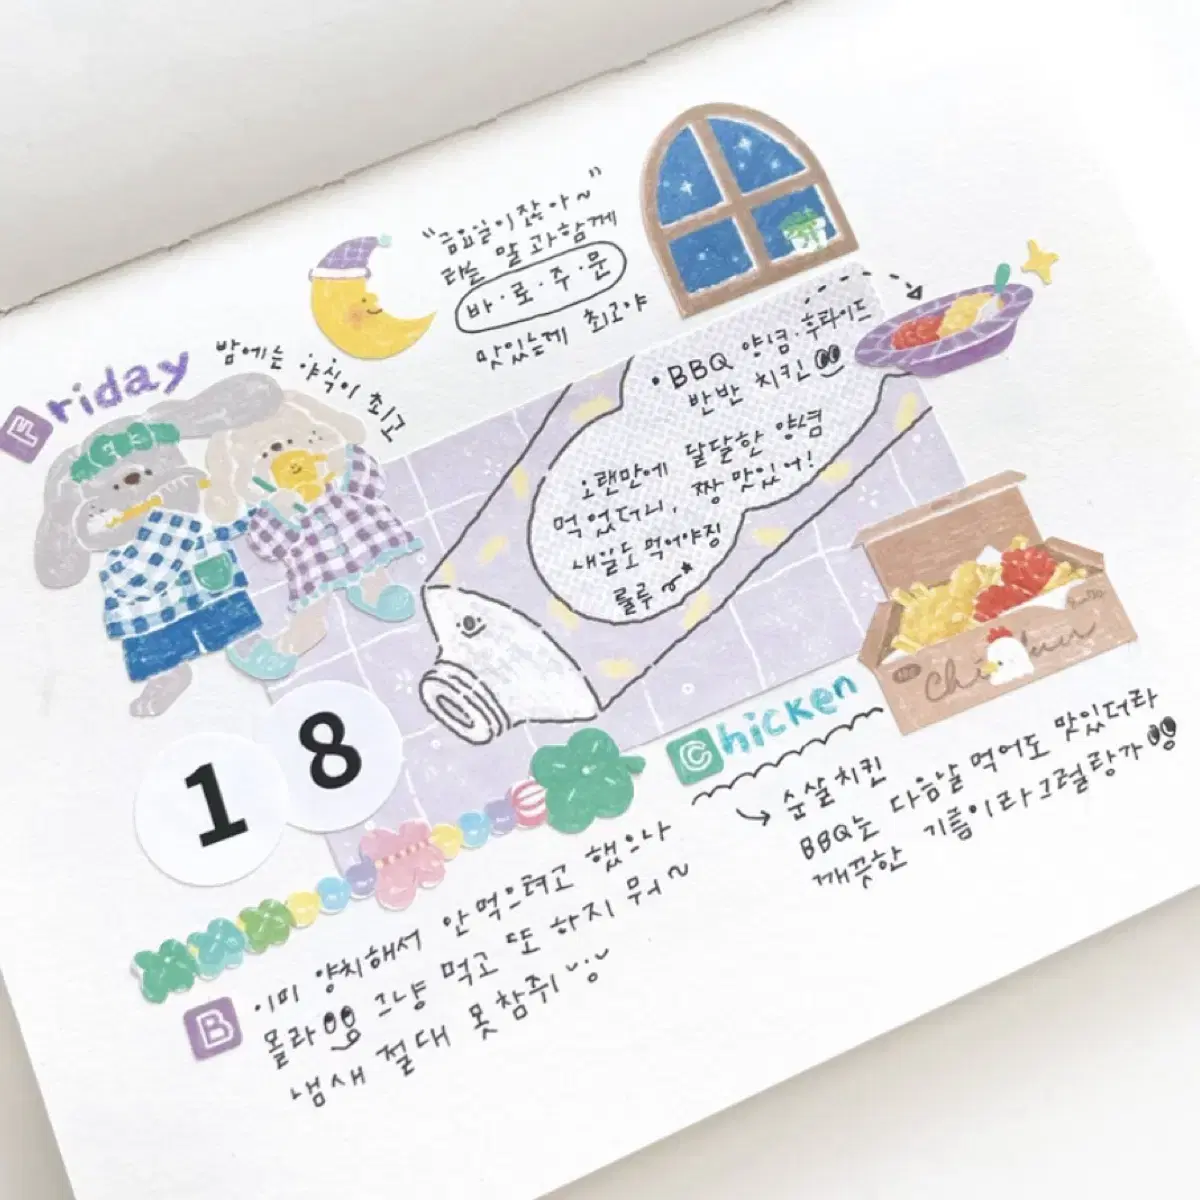 Friday
밤에는 야식이 최고
"금요일이잖아~"
라는 말과 함께
바·로·주·문
맛있는게 최고야
• BBQ 양념·후라이드
반반 치킨
오랜만에 달달한 양념
먹었더니, 짱 맛있어!
내일도 먹어야징
룰루
18
Chicken
Chicken
순살치킨
BBQ는 다음날 먹어도 맛있더라
깨끗한 기름이라 그럴랑가
B
이미 양치해서 안 먹으려고 했으나
몰라 그냥 먹고 또 하지 뭐~
냄새 절대 못참쥐